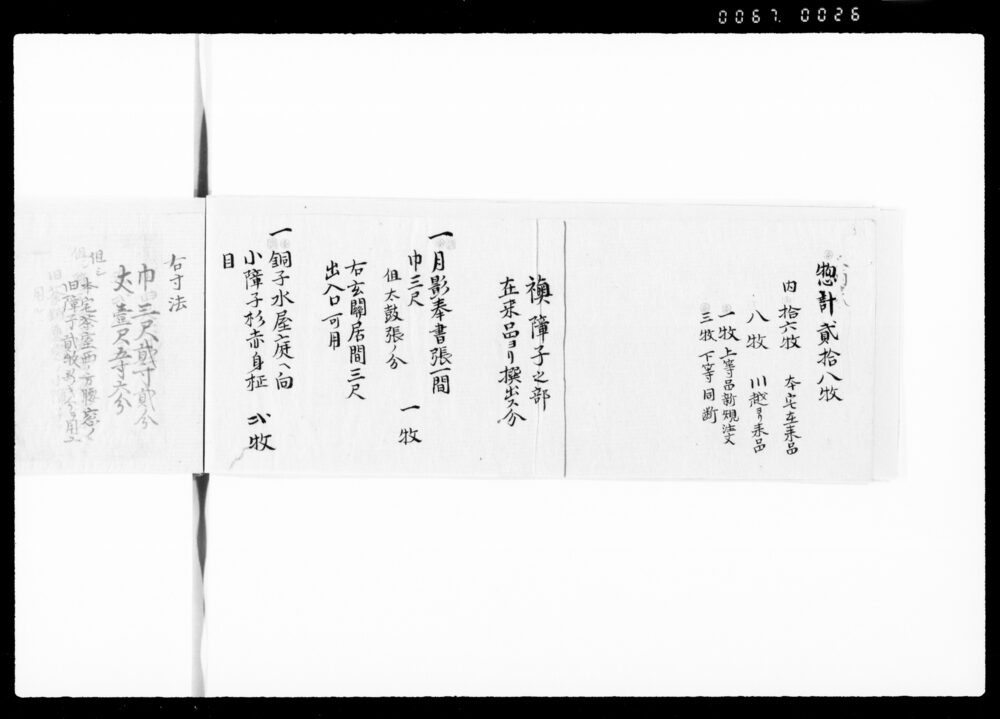 0067.0026
惣計貳拾八牧
内 拾六牧 本宅在来品
八牧 川越ヨリ来品
一牧 上等品新規注文
三牧 下等同断
襖障子之部
在来品ヨリ撰出ス分
一月影奉書張一間
巾三尺 一牧
但太鼓張ノ分
右玄關居間三尺
出入口可月
一銅子水屋庭ヘ向
小障子杉赤身柾 弐牧
目
右寸法
巾三尺貳寸貳分
丈壹尺五寸六分
但シ本宅茶室西ノ方勝窓
旧障子貳牧